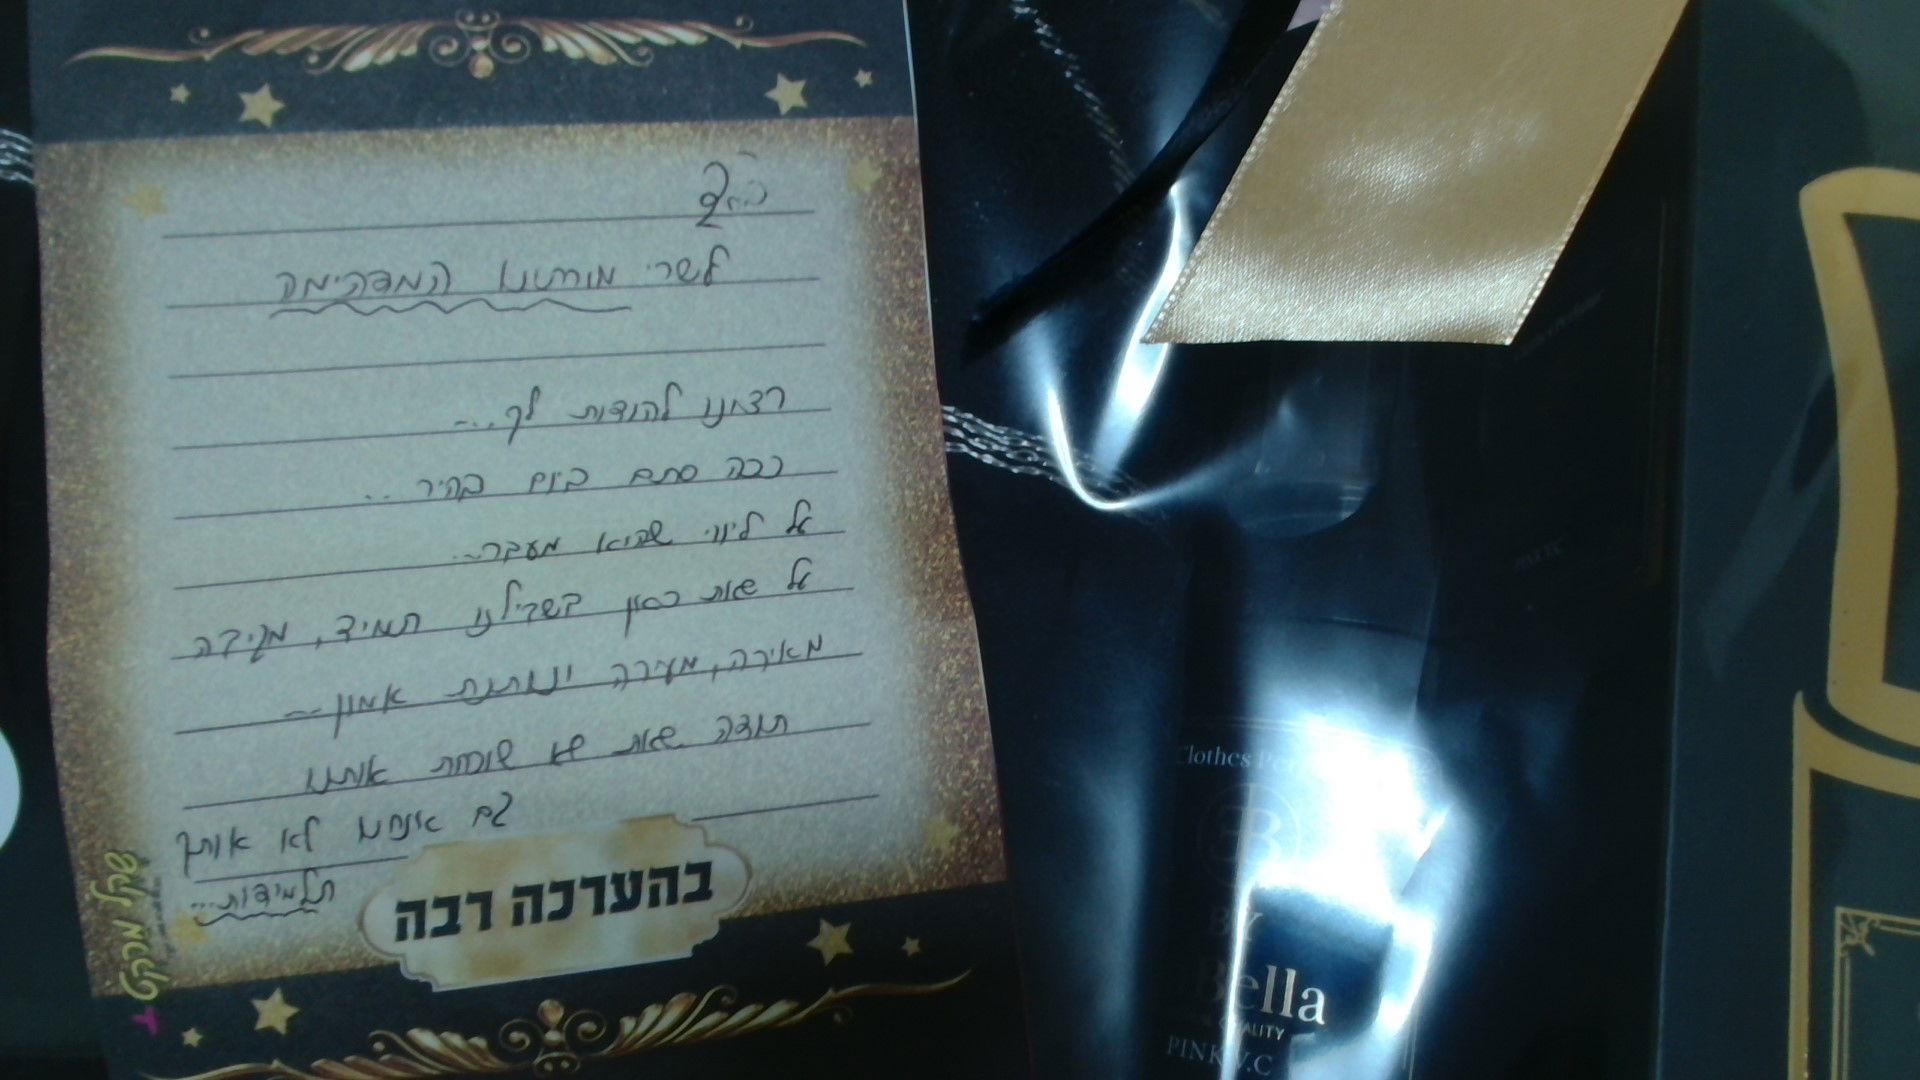 לשרי מורתנו המדהימה
רצינו להודות לך...
ככה סתם ביום בהיר...
על ליווי שהיא מעבר...
על שאת כאן בשבילנו תמיד, מקיבה
מאירה, מעירה ונותנת אמון...
תודה שאת לא שוכחת אותנו
גם אנחנו לא אותך
תלמידות...
בהערכה רבה
שקל מרקט
Clothes
BY
Bella
QUALITY
PINK V.C